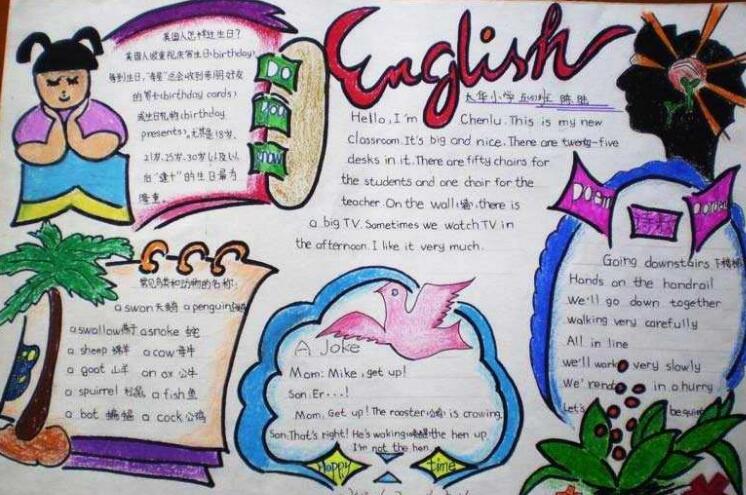 English
大华小学
英国人怎样过生日?
英国人很重视庆寄生日(birthday),
每到生日,"寿星"总会收到亲朋好友
的贺卡(birthday cards)
或生日礼物(birthday
presents),尤其是18岁、
21岁、25岁、30岁以及以
后"逢十"的生日最为
隆重。
DO
YOU
know
Hello, I'm Chenlu. This is my new
classroom. It's big and nice. There are twenty-five
desks in it. There are fifty chairs for
the students and one chair for the
teacher. On the wall(墙), there is
a big TV. Sometimes we watch TV in
the afternoon. I like it very much.
常见鸟类和动物的名称:
a swan 天鹅 a penguin企鹅
a swallow燕子 a snake 蛇
a sheep 绵羊 a cow 母牛
a goat 山羊 an ox 公牛
a spuirrel 松鼠 a fish 鱼
a bat 蝙蝠 a cock 公鸡
A Joke
Mom: Mike, get up!
Son: Er...!
Mom: Get up! The rooster(公鸡) is crowing.
Son: That's right! He's waking the hen up.
I'm not the hen.
Happy
time
Going downstairs 下楼梯
Hands on the handrail
We'll go down together
walking very carefully
All in line
we'll work very slowly
We' in a hurry
Let's